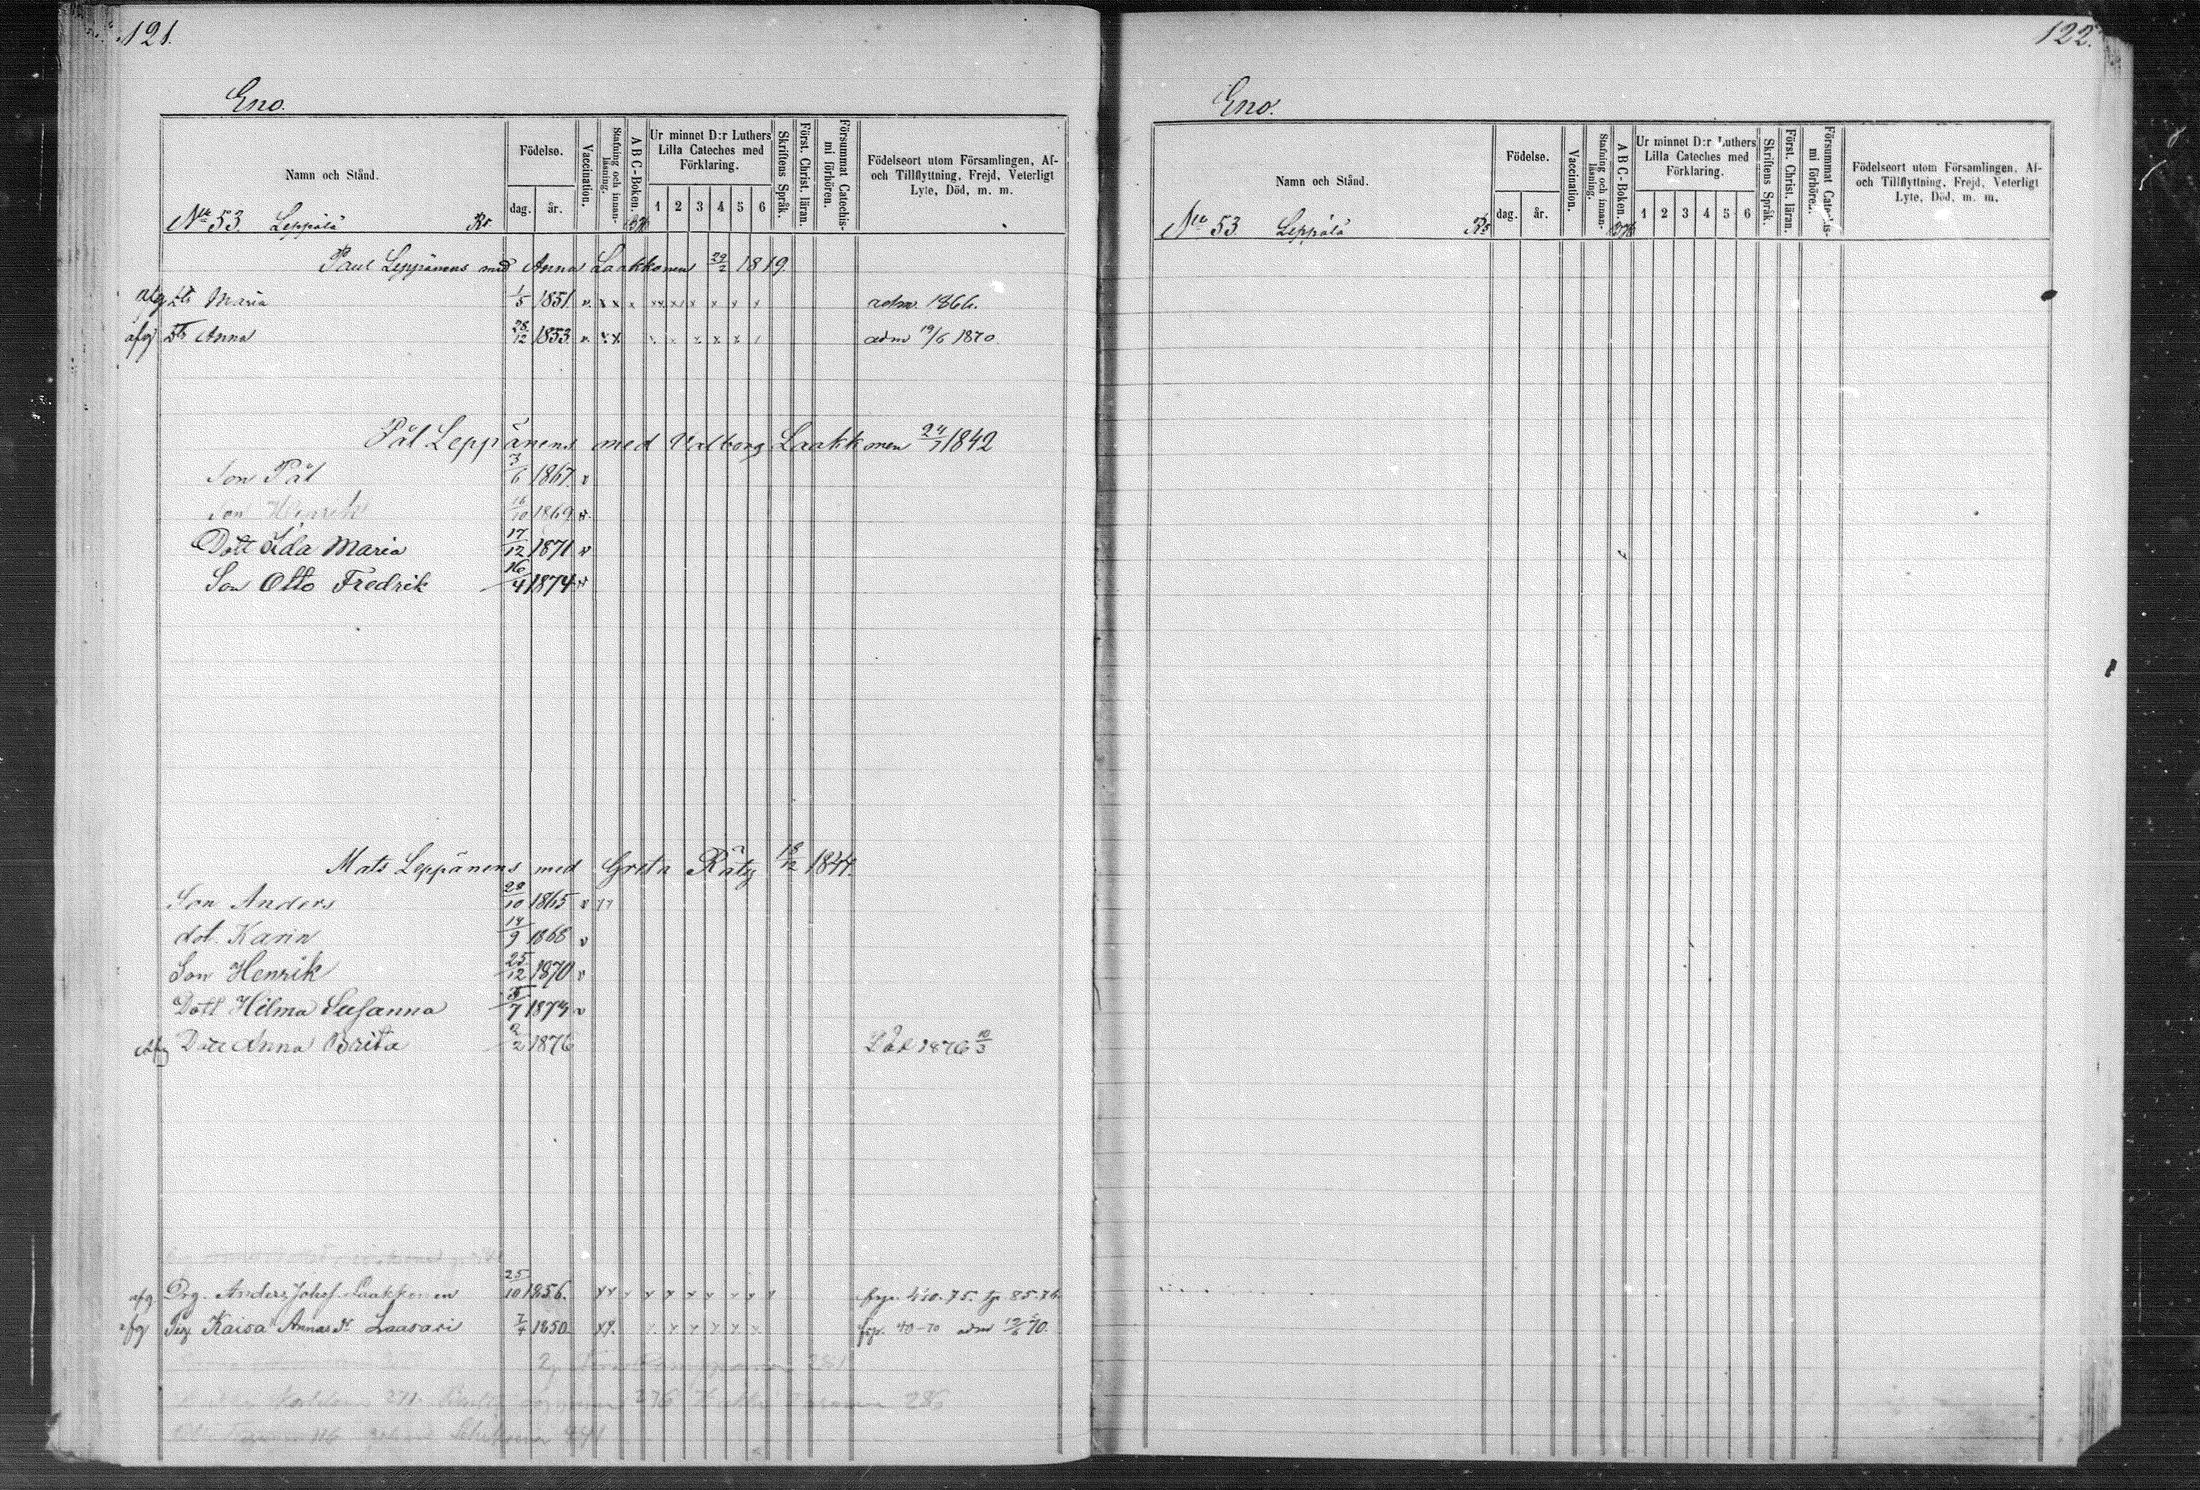 121.
Eno.
Namn och Stånd.
Födelse.
dag. år.
Vaccination.
Stafning och innanläsning.
ABC-Boken.
Ur minnet D:r Luthers Lilla Cateches med Förklaring.
1 2 3 4 5 6
Skriftens Språk.
Först. Christ. läran.
Försummat Catechismi förhören.
Födelseort utom Församlingen, Af- och Tillflyttning, Frejd, Veterligt Lyte, Död, m. m.
No 53. Leppälä
Paul Leppänens med Anna Laakkonen 29/2 1819.
afg Dtr Maria 1/5 1851. v. x x x x x x x x x adm. 1866.
afg Dtr Anna 28/12 1853 v. x x x x x x x adm 19/6 1870.
Pål Leppänens med Valborg Laakkonen 24/7 1842
Son Pål 3/6 1867. v
Son Henrik 16/10 1869 v.
Dott Ida Maria 17/12 1871 v
Son Otto Fredrik 16/4 1874 v
Mats Leppänens med Greta Räty 18/12 1844.
Son Anders 28/10 1865 v
dot. Karin 14/9 1868 v
Son Henrik 25/12 1870 v
Dott Hilma Susanna 5/7 1873 v
afg Dott Anna Brita 2/2 1876 Död 1876 10/3
afg Drg. Anders Johss. Laakkonen 25/10 1856. x x x x x x x x
afg Pig Kaisa Annas dr Laasari 7/4 1850. x x. x x x x x 40-70 adm 19/6 70.
281
271 276 286
122.
Eno.
Namn och Stånd.
Födelse.
dag. år.
Vaccination.
Stafning och innanläsning.
ABC-Boken.
Ur minnet D:r Luthers Lilla Cateches med Förklaring.
1 2 3 4 5 6
Skriftens Språk.
Först. Christ. läran.
Försummat Catechismi förhören.
Födelseort utom Församlingen, Af- och Tillflyttning, Frejd, Veterligt Lyte, Död, m. m.
No 53. Leppälä